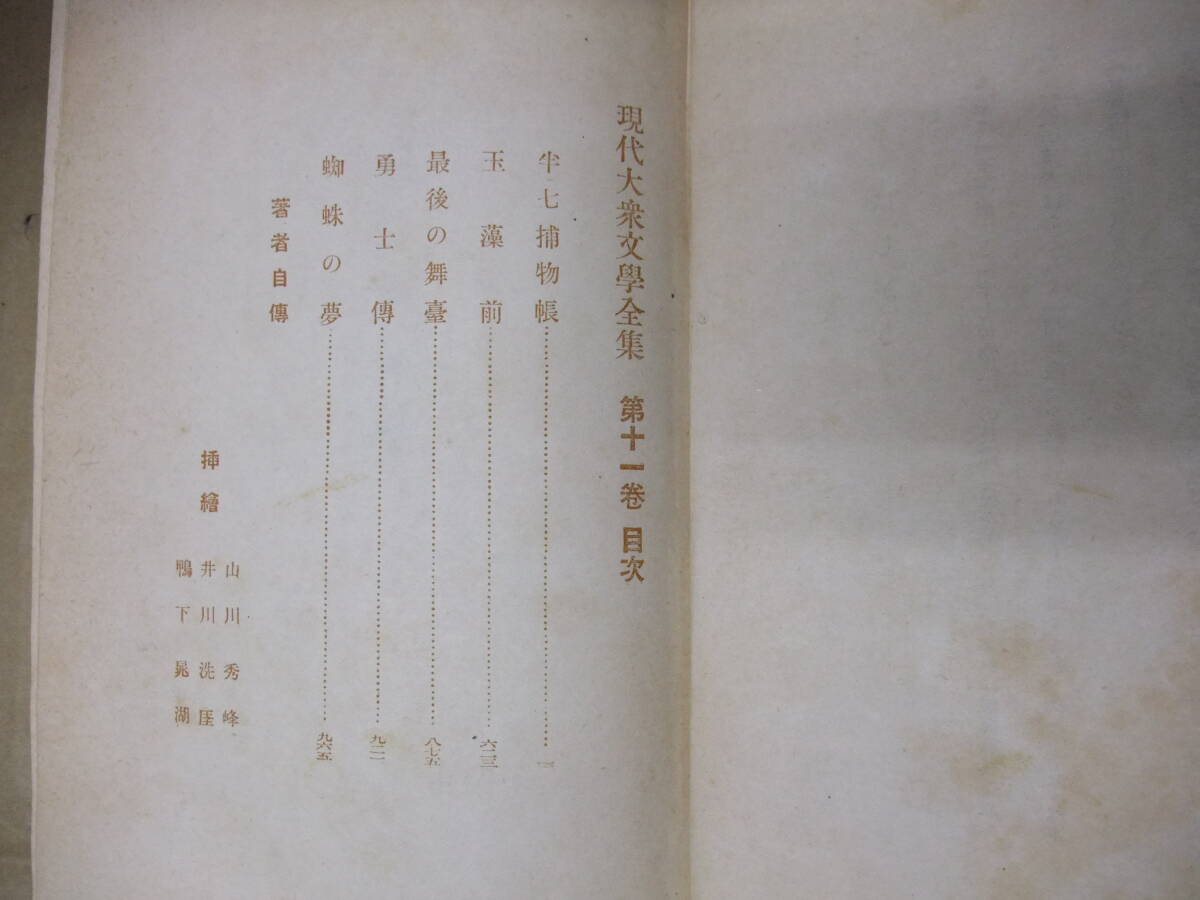 現代大衆文學全集 第十一卷 目次
半七捕物帳
玉藻前……六一三
最後の舞臺……八七五
勇士傳……九二一
蜘蛛の夢……九六五
著者自傳
挿繪
山川秀峰
井川洗厓
鴨下晁湖